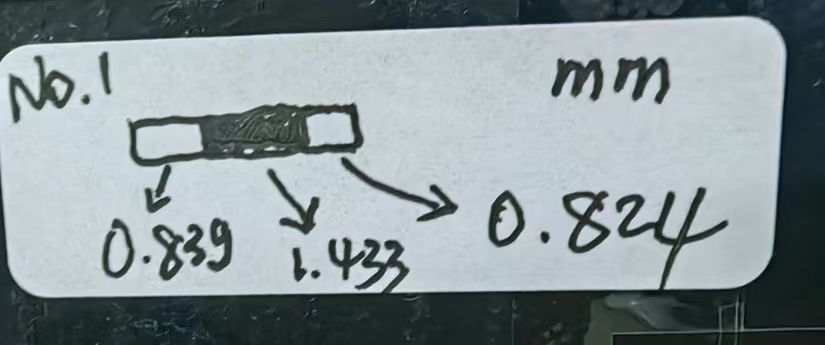 No.1 mm
0.839 1.433 0.824